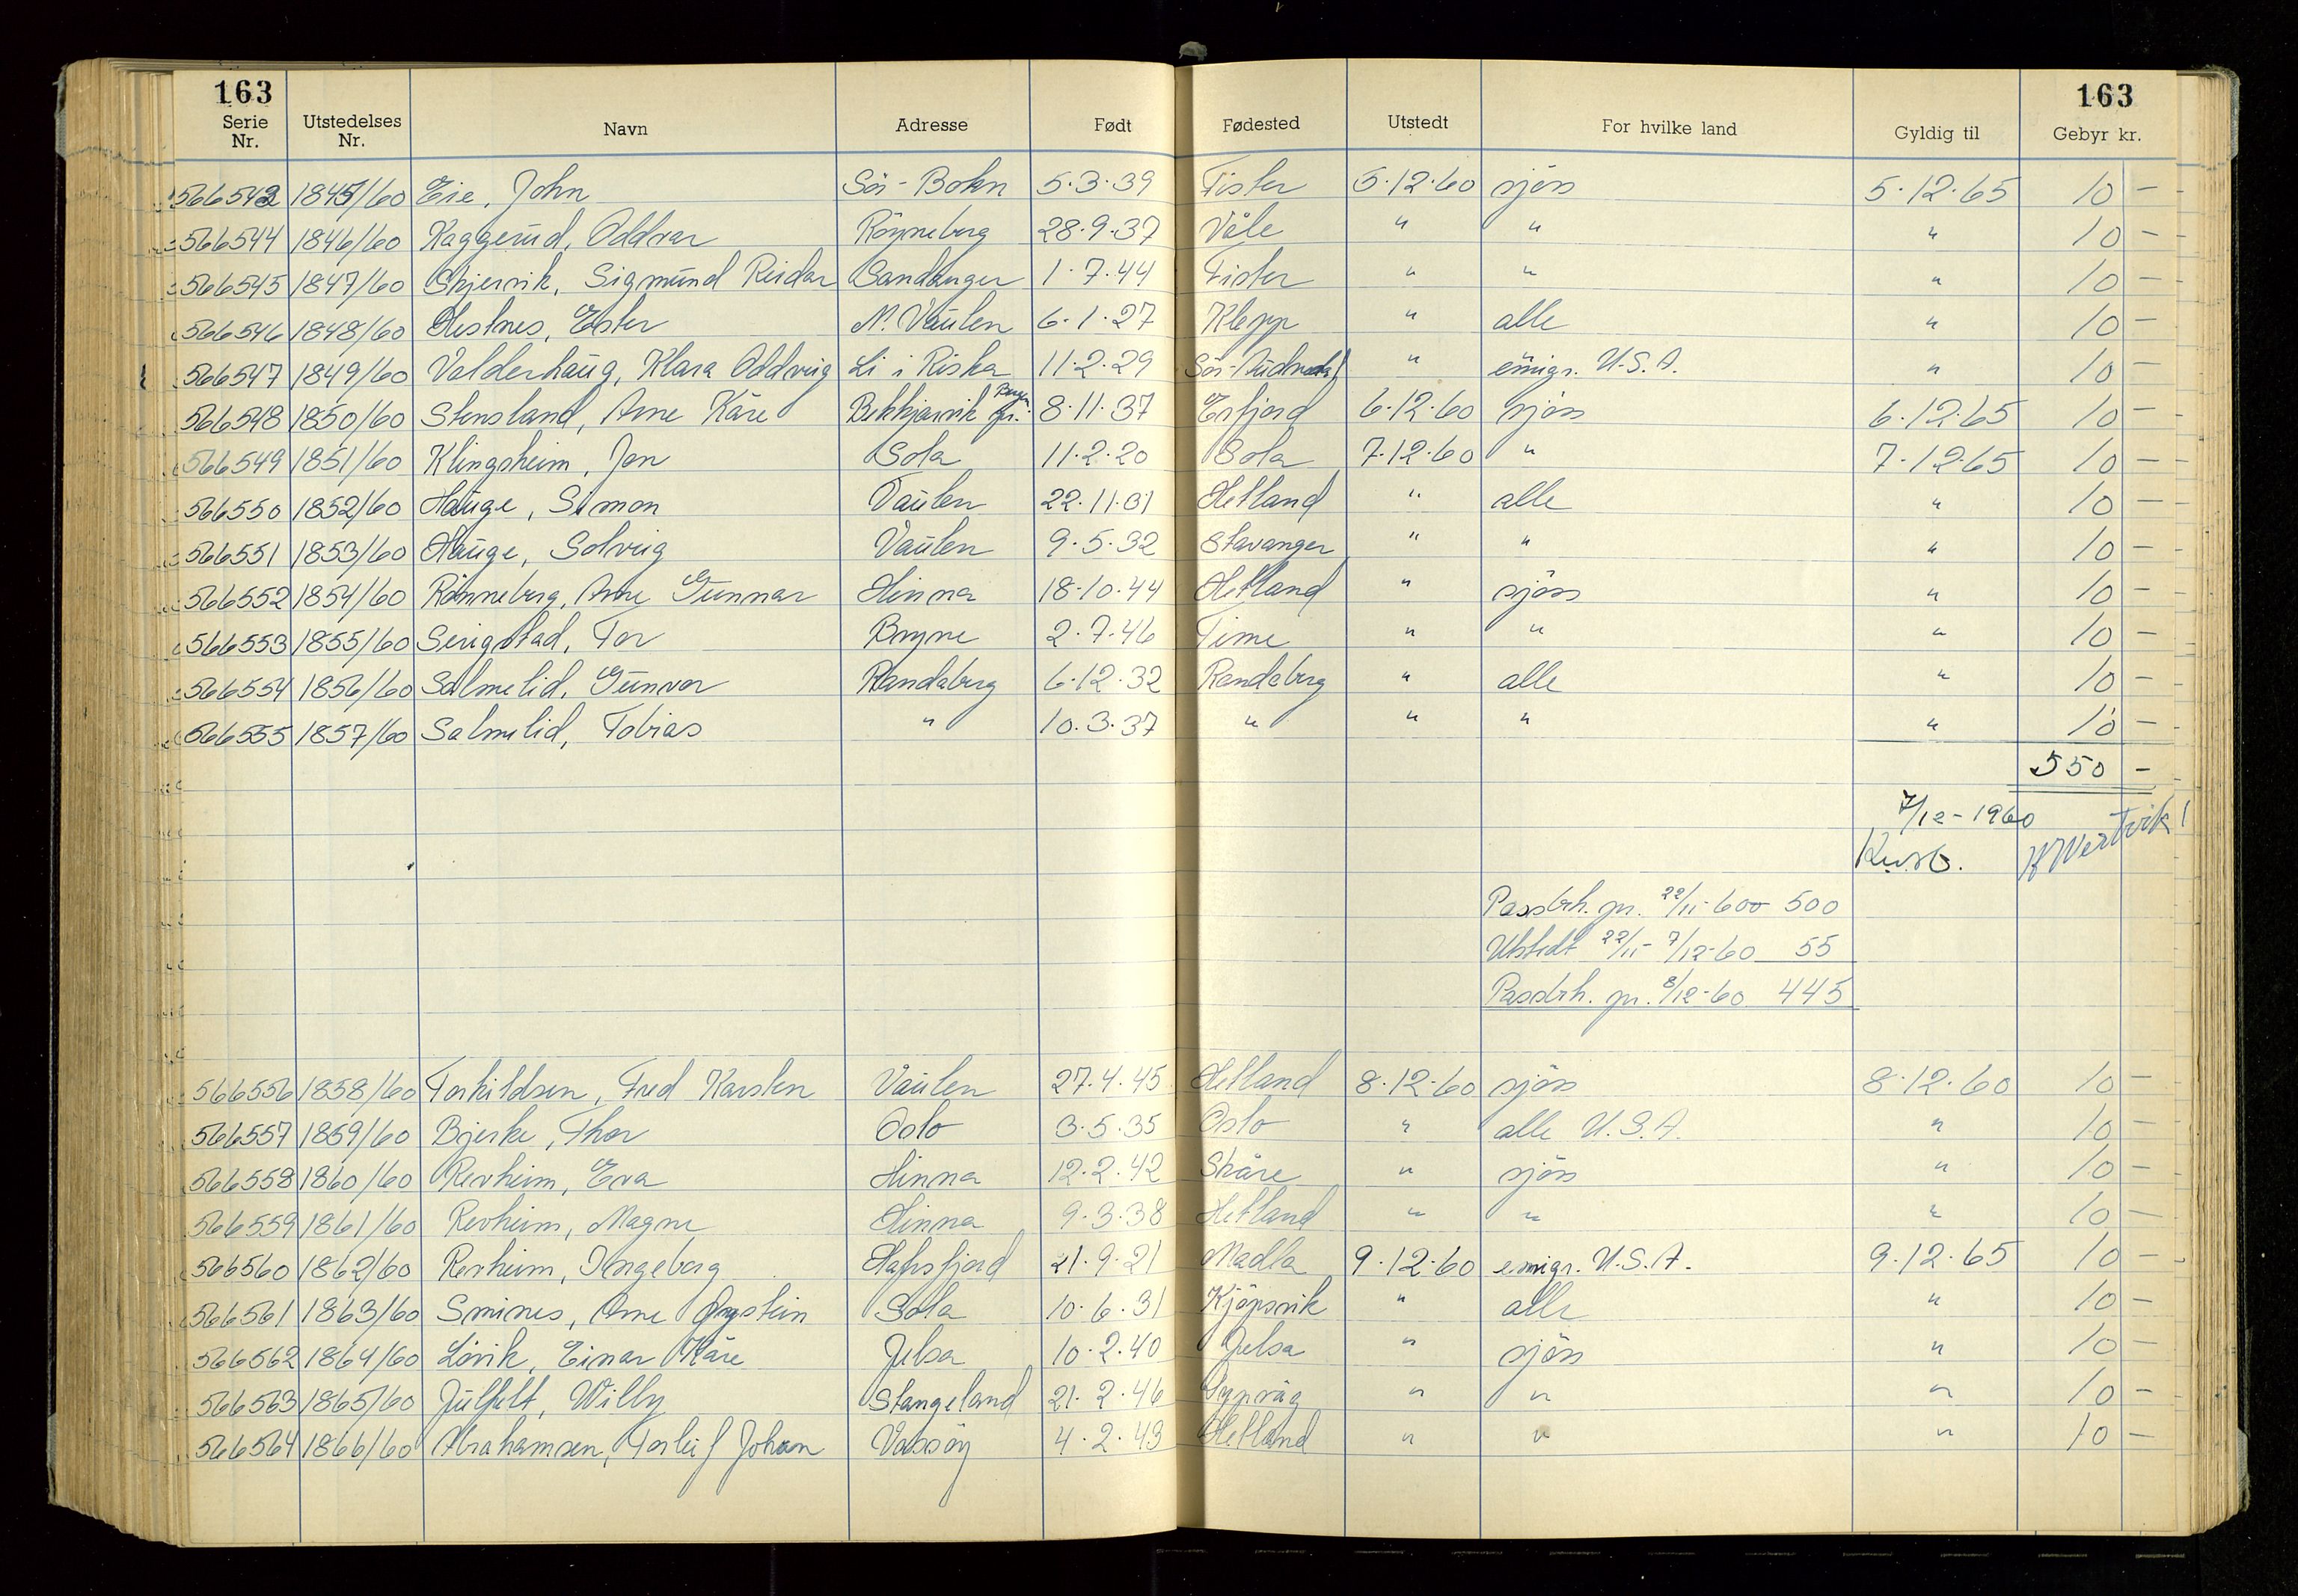 163 163
Serie Nr. Utstedelses Nr. Navn Adresse Født Fødested Utstedt For hvilke land Gyldig til Gebyr kr.
566543 1845/60 Eie, John Sör-Bokn 5.3.39 Fister 5.12.60 sjöss 5.12.65 10 -
566544 1846/60 Kaggerud, Oddvar Röyneberg 28.9.37 Våle " " " 10 -
566545 1847/60 Skjervik, Sigmund Reidar Sandanger 1.7.44 Fister " " " 10 -
566546 1848/60 Hestnes, Ester N. Vaulen 6.1.27 Klepp " alle " 10 -
566547 1849/60 Valderhaug, Klara Oddveig Li i Riska 11.2.29 Sör-Audnedal " emigr. U.S.A. " 10 -
566548 1850/60 Stensland, Arne Kåre Bekkjarvik pr. Bergen 8.11.37 Erfjord 6.12.60 sjöss 6.12.65 10 -
566549 1851/60 Klingsheim, Jon Sola 11.2.20 Sola 7.12.60 " 7.12.65 10 -
566550 1852/60 Hauge, Simon Vaulen 22.11.31 Hetland " alle " 10 -
566551 1853/60 Hauge, Solveig Vaulen 9.5.32 Stavanger " " " 10 -
566552 1854/60 Rönneberg, Arne Gunnar Hinna 18.10.44 Hetland " sjöss " 10 -
566553 1855/60 Serigstad, Tor Bryne 2.7.46 Time " " " 10 -
566554 1856/60 Salmelid, Gunvor Randaberg 6.12.32 Randaberg " alle " 10 -
566555 1857/60 Salmelid, Tobias " 10.3.37 " " " " 10 -
550 -
7/12-1960
Passbh. pr. 22/11-60 500
Utstedt 22/11-7/12-60 55
Passbh. pr. 8/12-60 445
566556 1858/60 Torkildsen, Fred Karsten Vaulen 27.4.45 Hetland 8.12.60 sjöss 8.12.60 10 -
566557 1859/60 Bjerke, Thor Oslo 3.5.35 Oslo " alle U.S.A. " 10 -
566558 1860/60 Revheim, Eva Hinna 12.2.42 Skåre " sjöss " 10 -
566559 1861/60 Revheim, Magne Hinna 9.3.38 Hetland " " " 10 -
566560 1862/60 Revheim, Ingeborg Hafrsfjord 21.9.21 Madla 9.12.60 emigr. U.S.A. 9.12.65 10 -
566561 1863/60 Smines, Arne Öystein Sola 10.6.31 Kjöpsvik " alle " 10 -
566562 1864/60 Lövik, Einar Kåre Jelsa 10.2.40 Jelsa " sjöss " 10 -
566563 1865/60 Julfelt, Willy Stangeland 21.2.46 Dypvåg " " " 10 -
566564 1866/60 Abrahamsen, Torleif Johan Vassöy 4.2.43 Hetland " " " 10 -